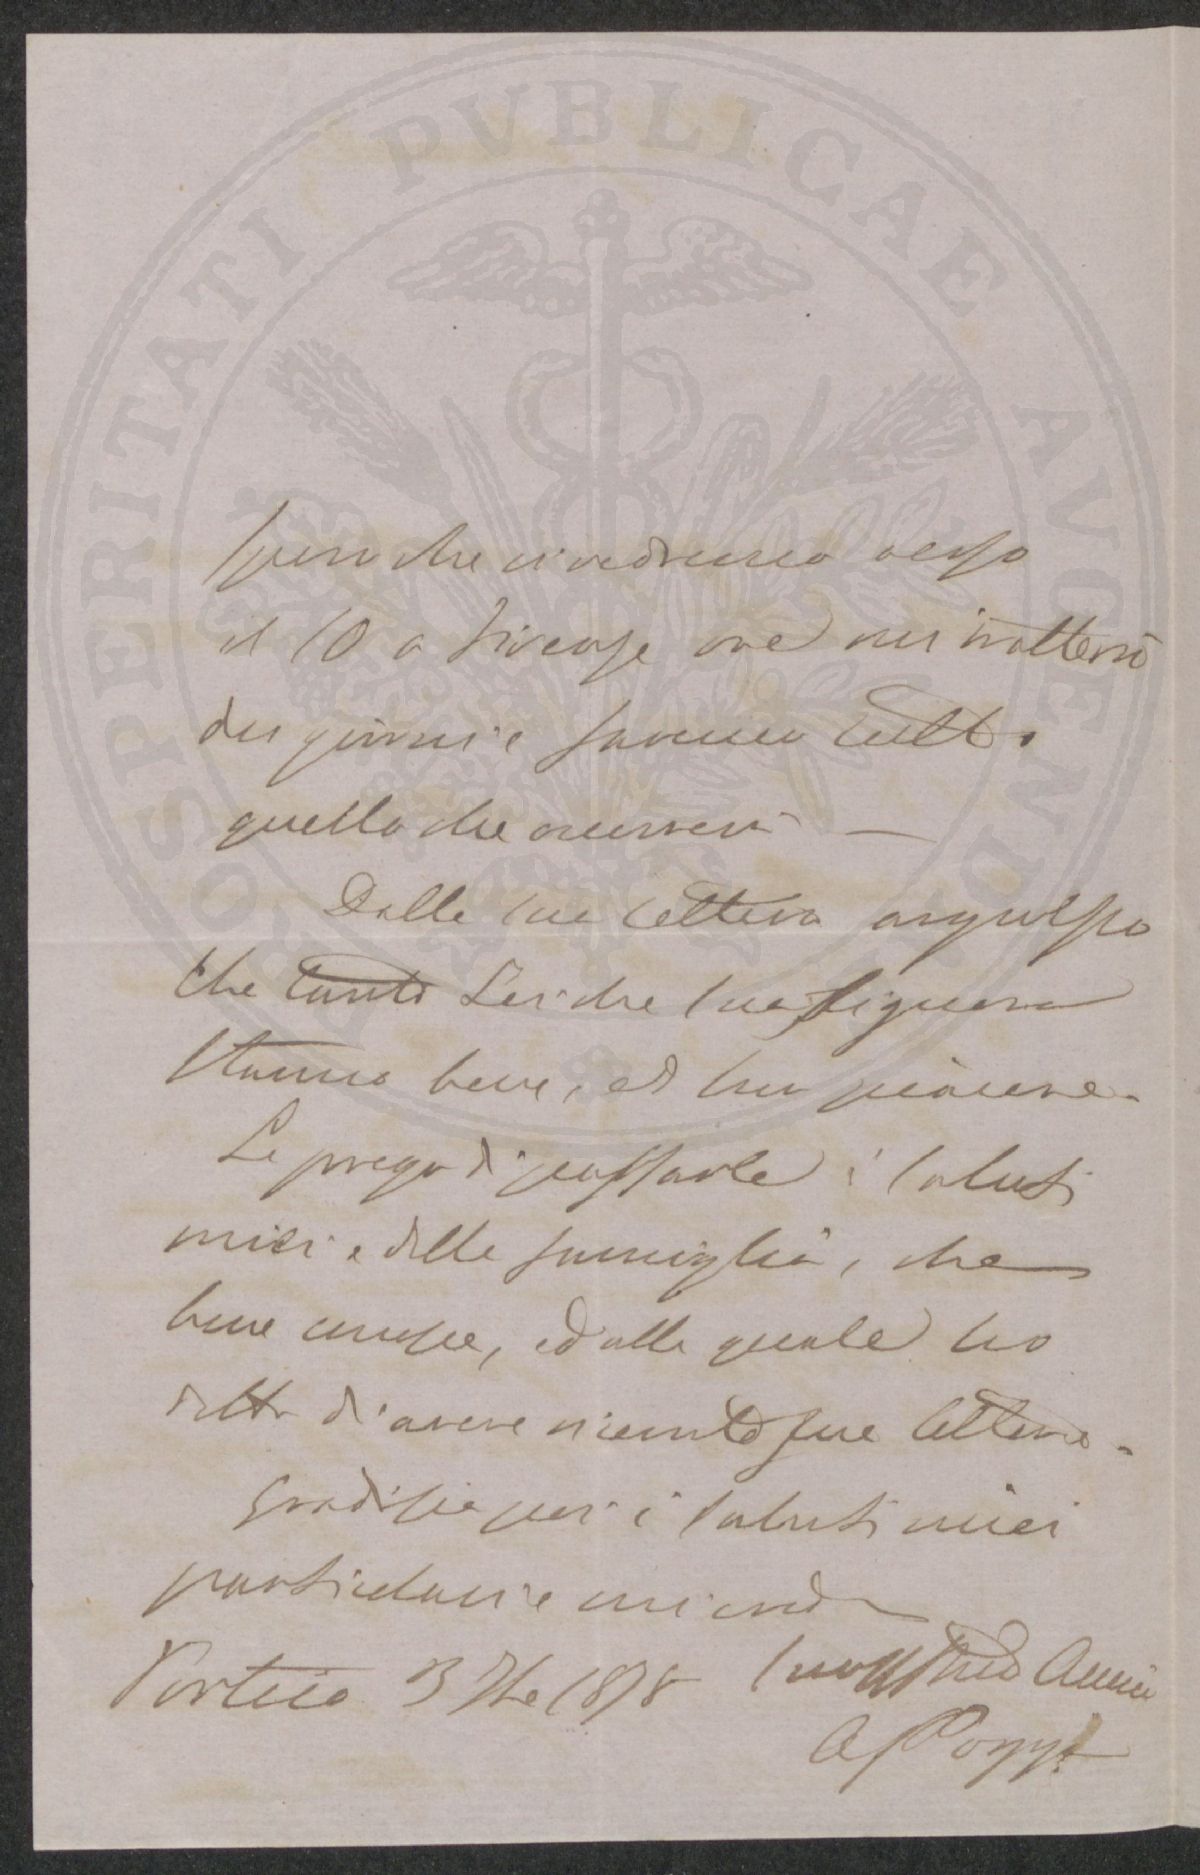 PROSPERITATI PVBLICAE AVGENDAE
spero che ci vedremo verso
il 10 a Firenze ove mi tratterrò
dei giorni e faremo tutto
quello che occorrerà —
Dalla sua lettera arguisco
che tanto Lei che sua Signora
stanno bene, ed ho piacere.
La prego di passarle i saluti
miei e della famiglia, che
bene, ed alla quale ho
detto d'avere ricevuto sue lettere.
Gradisca poi i saluti miei
particolari e mi creda
Portico 3 7bre 1878
Suo Amico